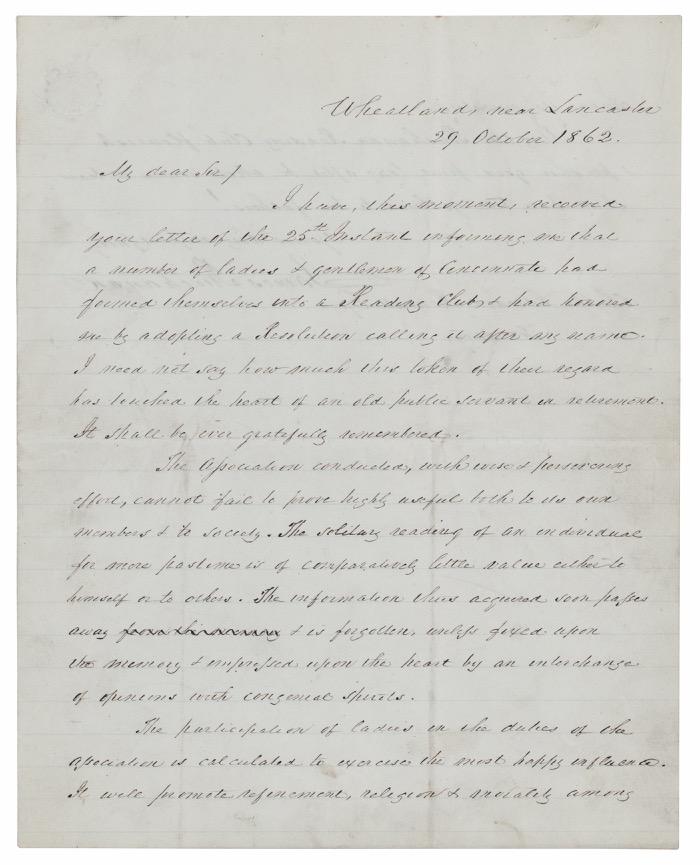 Wheatland, near Lancaster
29 October 1862.
My dear Sir/
I have, this moment, received
your letter of the 25th Instant informing me that
a number of ladies & gentlemen of Cincinnati had
formed themselves into a Reading Club, & had honored
me by adopting a Resolution calling it after my name.
I need not say how much this token of their regard
has touched the heart of an old public servant in retirement.
It shall be ever gratefully remembered.
The Association conducted, with wise & persevering
effort, cannot fail to prove highly useful both to its own
members & to society. The solitary reading of an individual
for mere pastime is of comparatively little value either to
himself or to others. The information thus acquired soon passes
away from the memory & is forgotten, unless fixed upon
the memory & impressed upon the heart by an interchange
of opinions with congenial spirits.
The participation of ladies in the duties of the
association is calculated to exercise the most happy influence.
It will promote refinement, religion & morality among